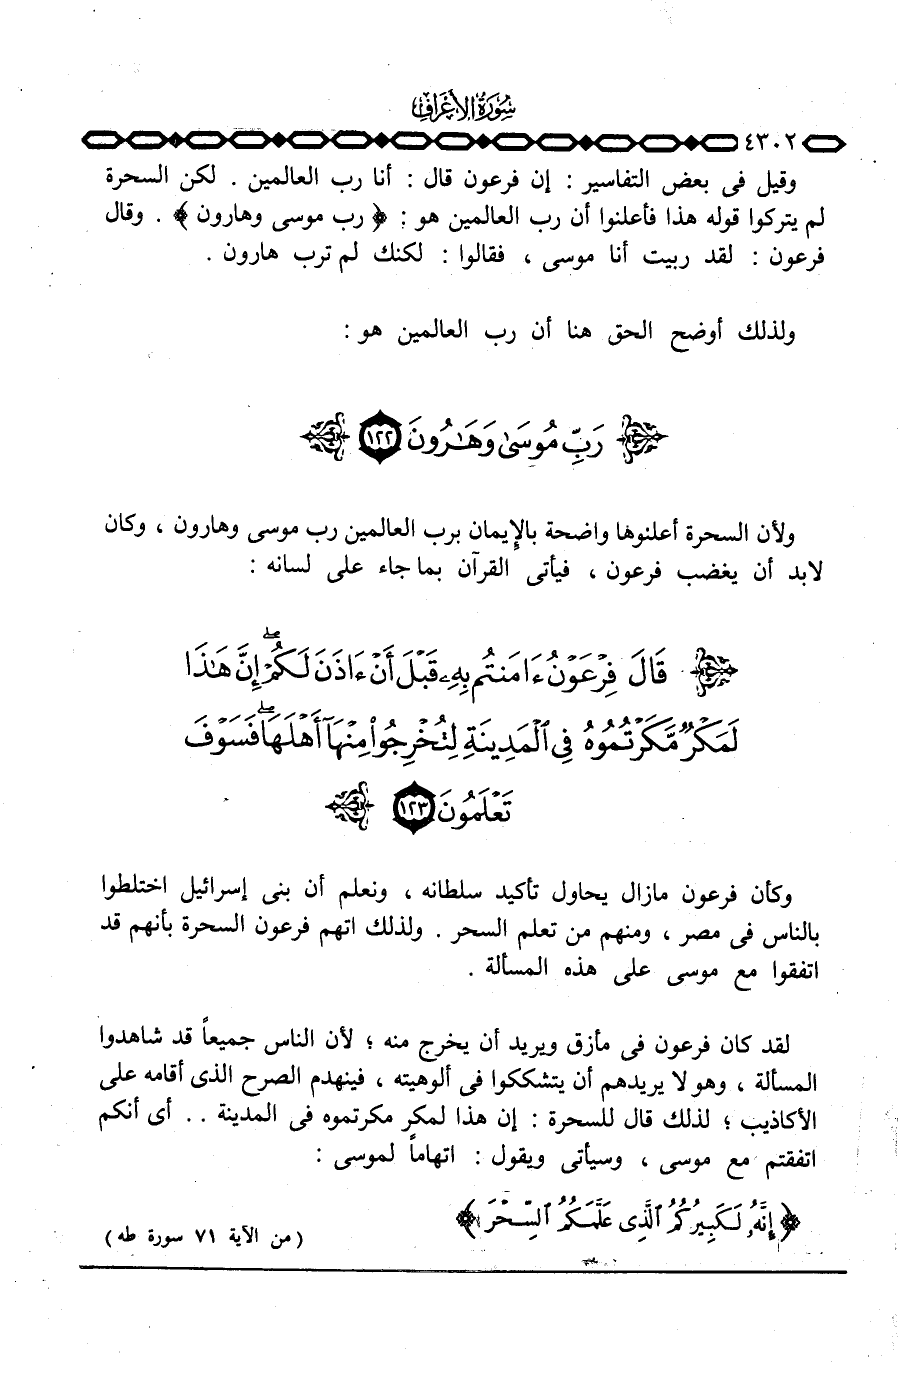 سورة الأعراف
٤٣٠٢
وقيل فى بعض التفاسير : إن فرعون قال : أنا رب العالمين . لكن السحرة
لم يتركوا قوله هذا فأعلنوا أن رب العالمين هو : ﴿ رب موسى وهارون ﴾ . وقال
فرعون : لقد ربيت أنا موسى ، فقالوا : لكنك لم ترب هارون .
ولذلك أوضح الحق هنا أن رب العالمين هو :
﴿ رَبِّ مُوسَىٰ وَهَـٰرُونَ ١٢٢ ﴾
ولأن السحرة أعلنوها واضحة بالإيمان برب العالمين رب موسى وهارون ، وكان
لابد أن يغضب فرعون ، فيأتى القرآن بما جاء على لسانه :
﴿ قَالَ فِرْعَوْنُ ءَامَنتُم بِهِۦ قَبْلَ أَنْ ءَاذَنَ لَكُمْ ۖ إِنَّ هَـٰذَا
لَمَكْرٌ مَّكَرْتُمُوهُ فِى ٱلْمَدِينَةِ لِتُخْرِجُوا۟ مِنْهَآ أَهْلَهَا ۖ فَسَوْفَ
تَعْلَمُونَ ١٢٣ ﴾
وكأن فرعون مازال يحاول تأكيد سلطانه ، ونعلم أن بنى إسرائيل اختلطوا
بالناس فى مصر ، ومنهم من تعلم السحر . ولذلك اتهم فرعون السحرة بأنهم قد
اتفقوا مع موسى على هذه المسألة .
لقد كان فرعون فى مأزق ويريد أن يخرج منه ؛ لأن الناس جميعاً قد شاهدوا
المسألة ، وهو لا يريدهم أن يتشككوا فى ألوهيته ، فينهدم الصرح الذى أقامه على
الأكاذيب ؛ لذلك قال للسحرة : إن هذا لمكر مكرتموه فى المدينة . . أى أنكم
اتفقتم مع موسى ، وسيأتى ويقول : اتهاماً لموسى :
﴿ إِنَّهُۥ لَكَبِيرُكُمُ ٱلَّذِى عَلَّمَكُمُ ٱلسِّحْرَ ﴾
( من الآية ٧١ سورة طه )